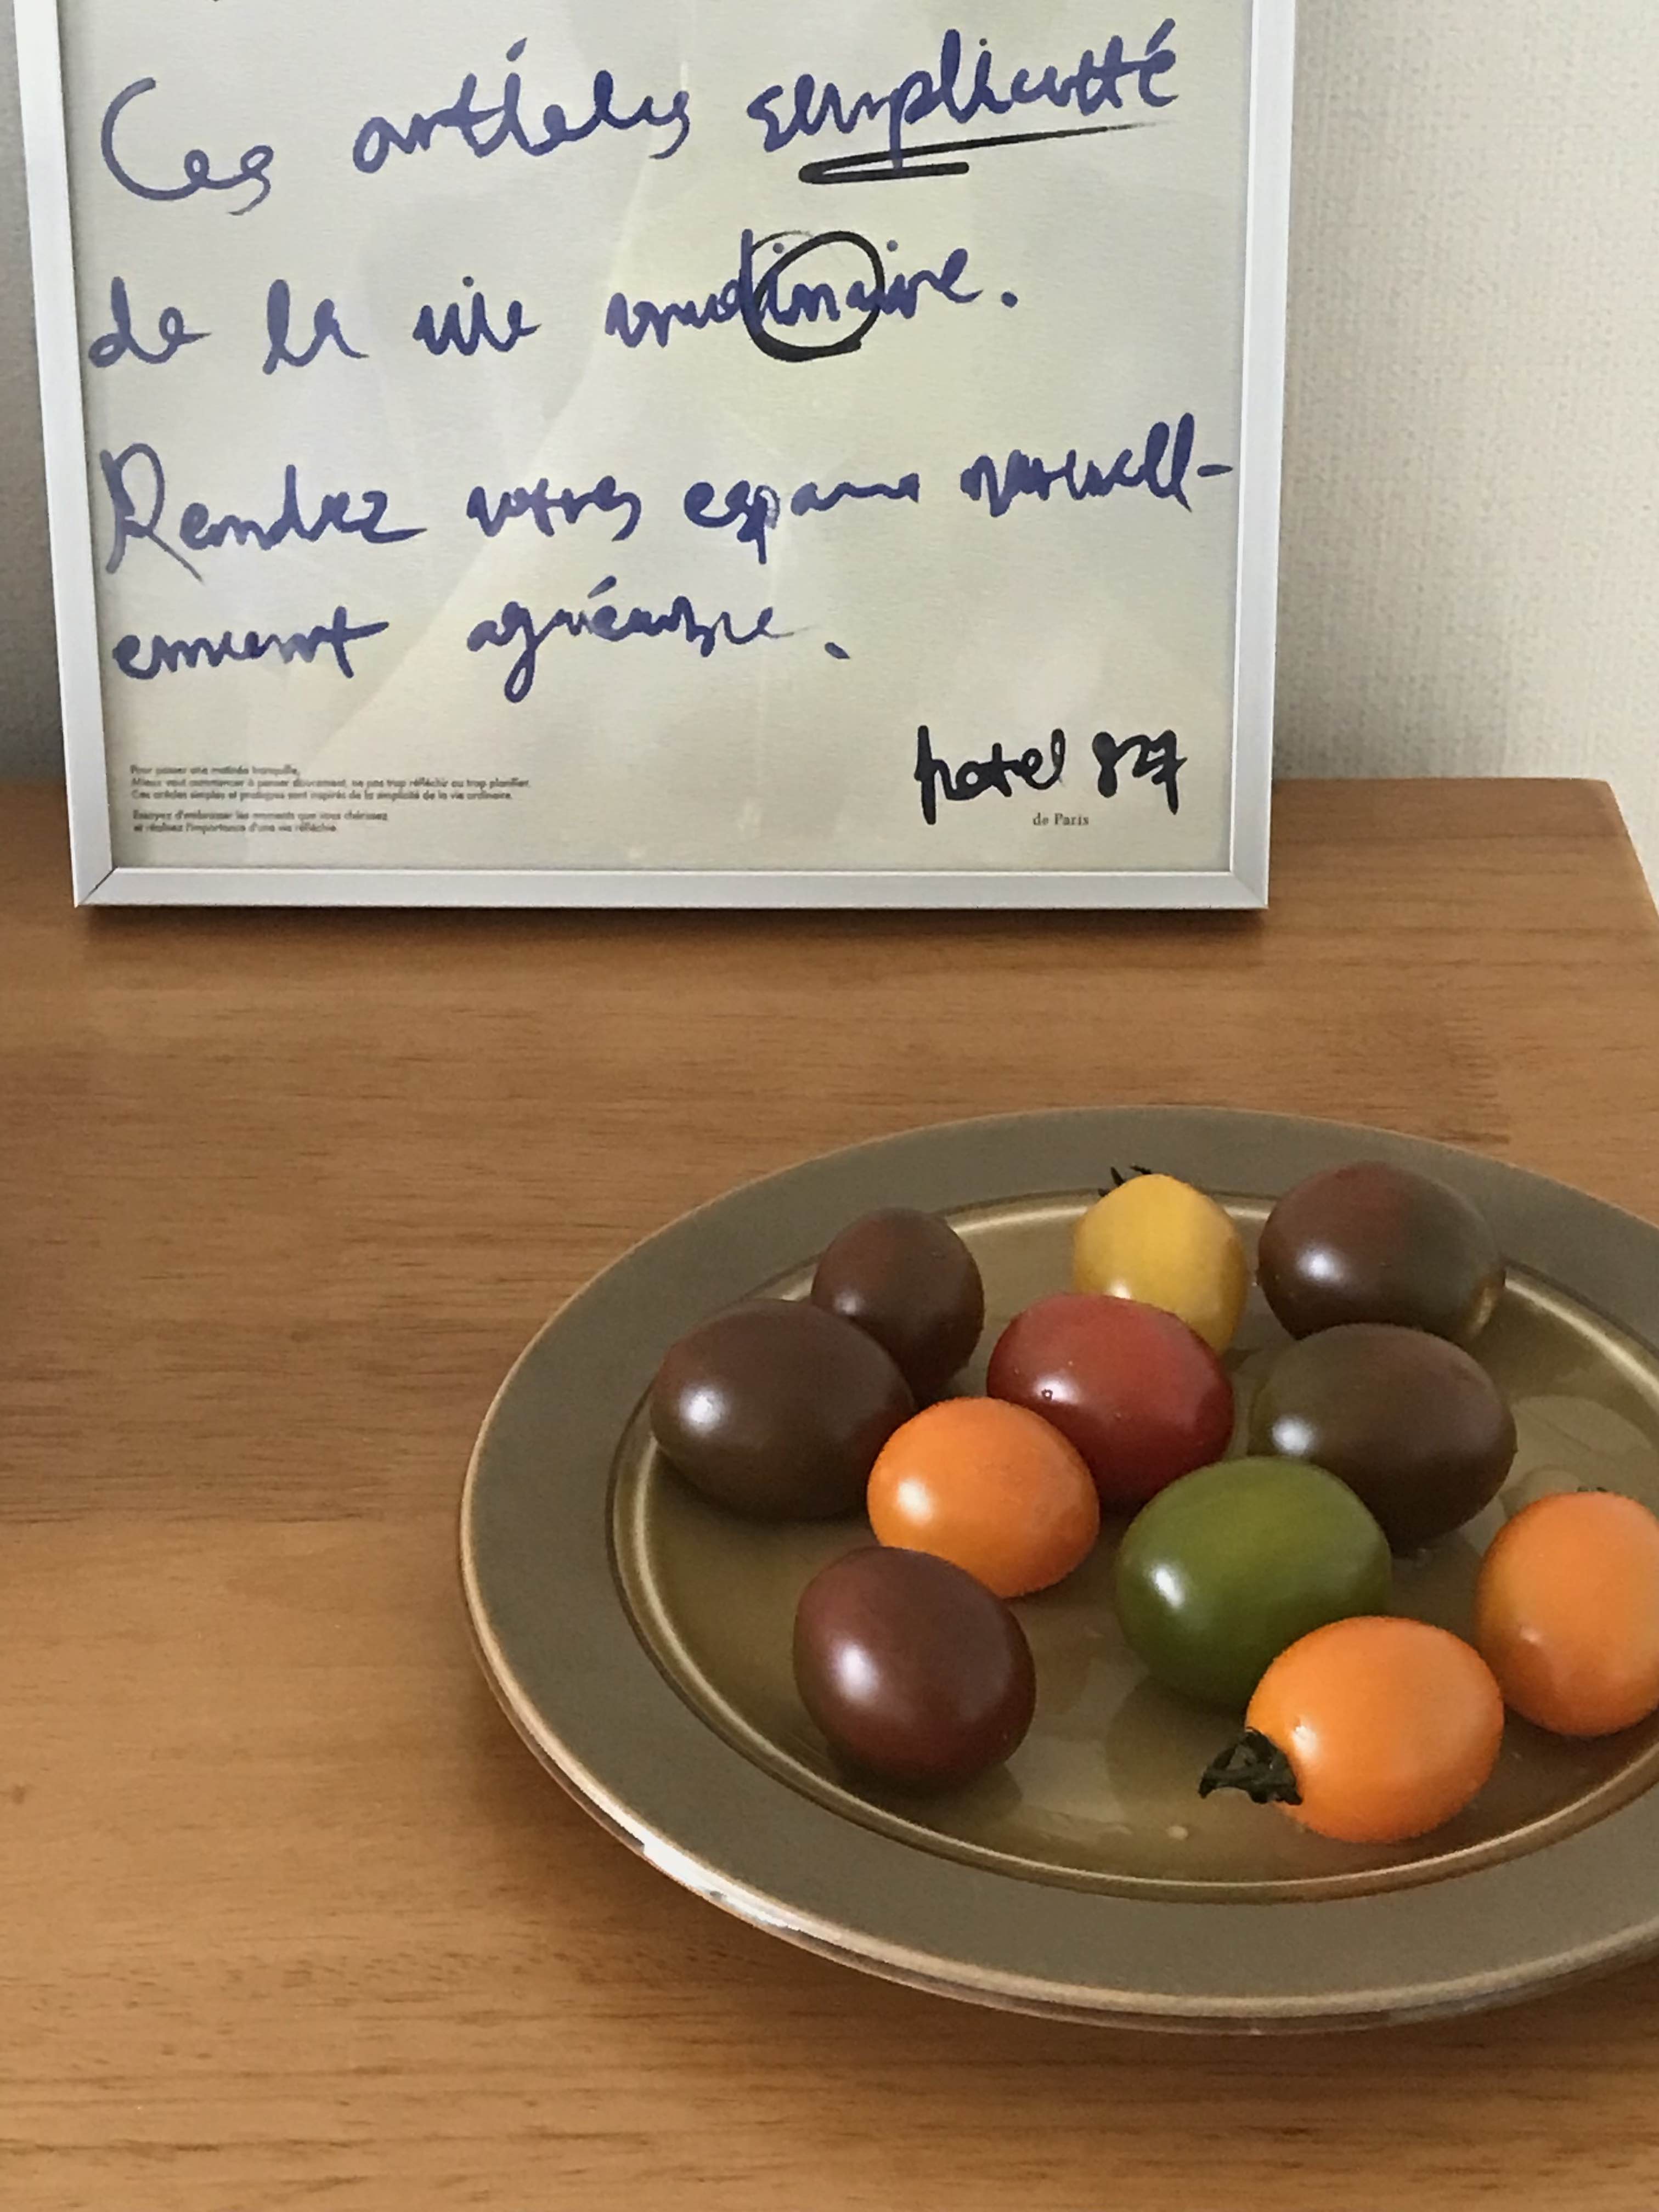 Ces artíeles semplicitté
de la vie
Rendez votres espace
agréable.
hotel 827
de Paris
Pour passer une matinée tranquille,
Mieux vaut commencer à penser doucement, ne pas trop réfléchir ou trop planifier.
Ces articles simples et pratiques sont inspirés de la simplicité de la vie ordinaire.
Essayez d'embrasser les moments que vous chérissez
et réalisez l'importance d'une vie réfléchie.